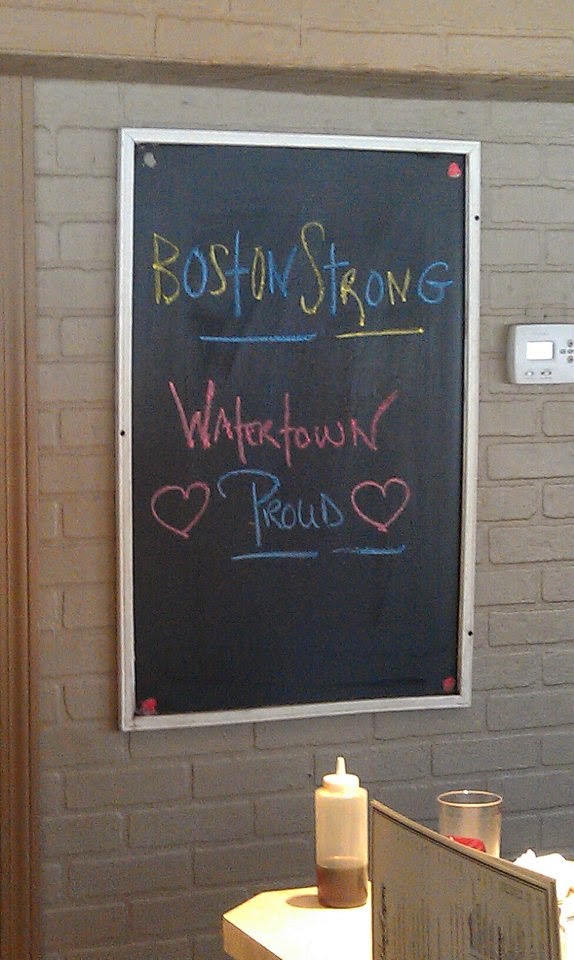 BOSTON STRONG
WATERTOWN
PROUD